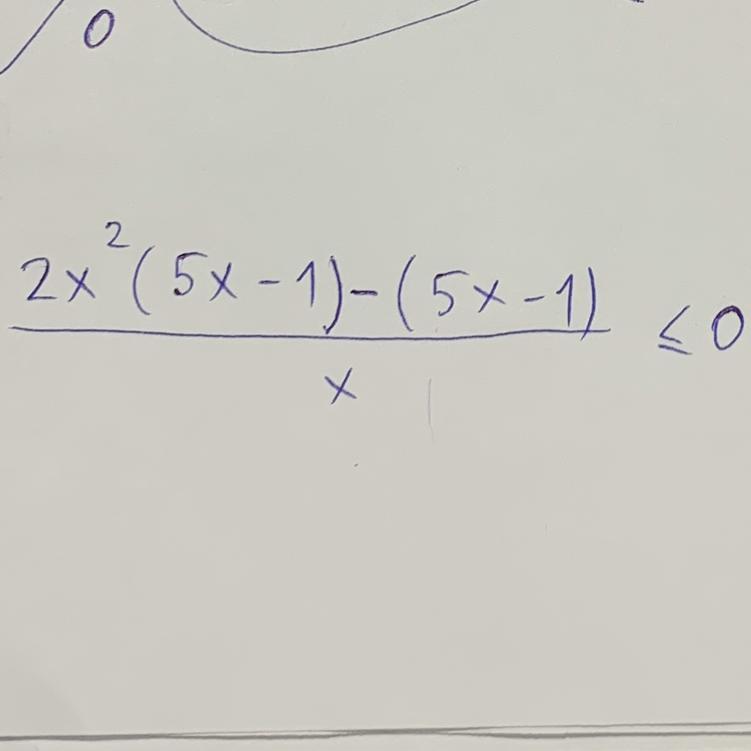 0
2x²(5x-1)-(5x-1)
x
≤ 0